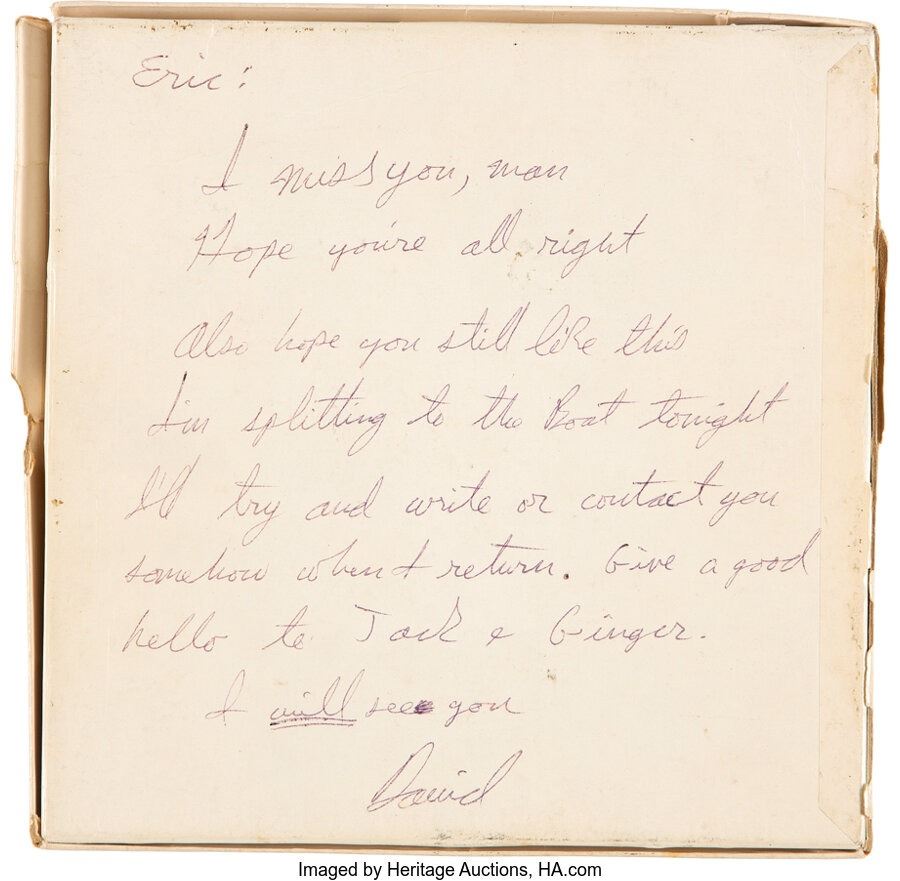 Eric:
I miss you, man
Hope you're all right
Also hope you still like this
I'm splitting to the Boat tonight
I'll try and write or contact you
somehow when I return. Give a good
hello to Jack & Ginger.
I will see you
David
Imaged by Heritage Auctions, HA.com